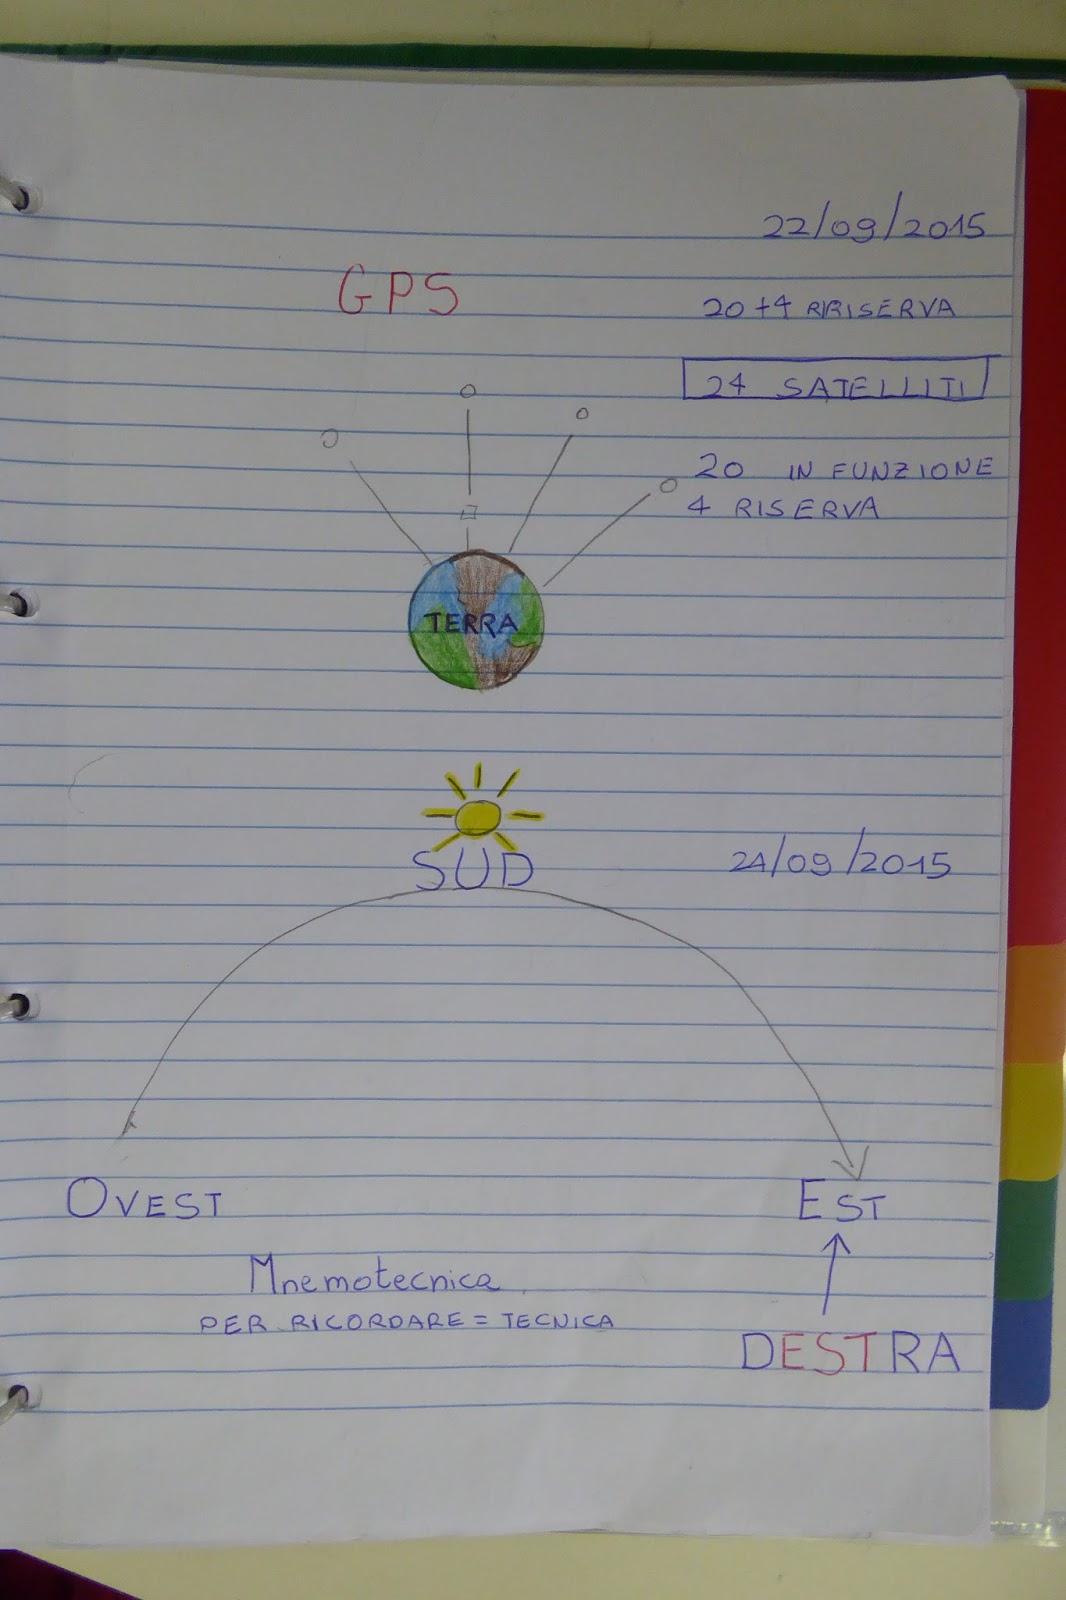 22/09/2015
GPS
20+4 RIRISERVA
24 SATELLITI
20 IN FUNZIONE
4 RISERVA
TERRA
SUD
24/09/2015
OVEST
EST
Mnemotecnica
PER RICORDARE = TECNICA
DESTRA